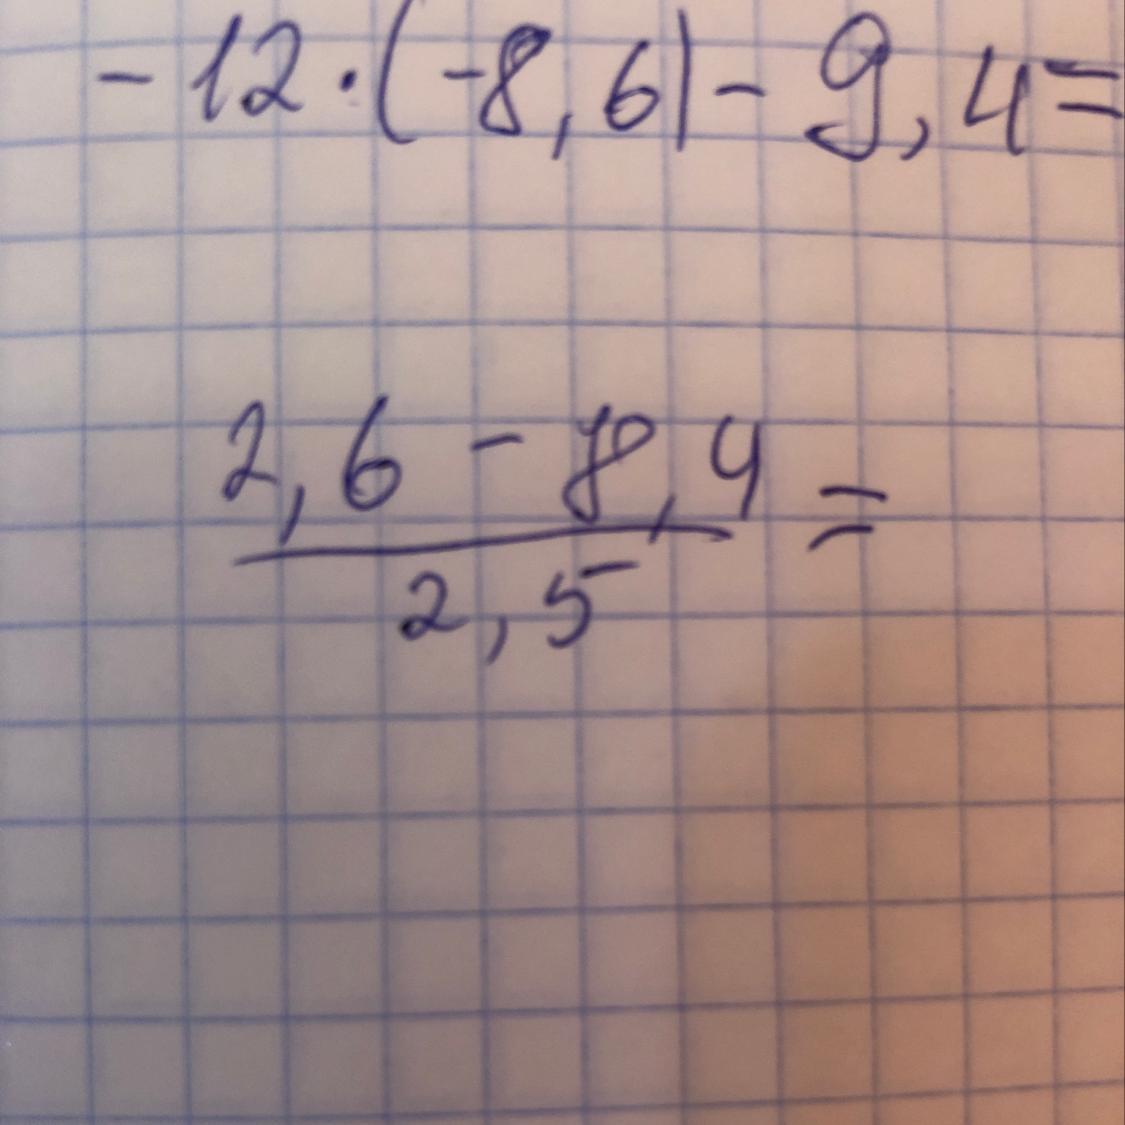 -12·(-8,6)-9,4=
2,6-8,4=
2,5